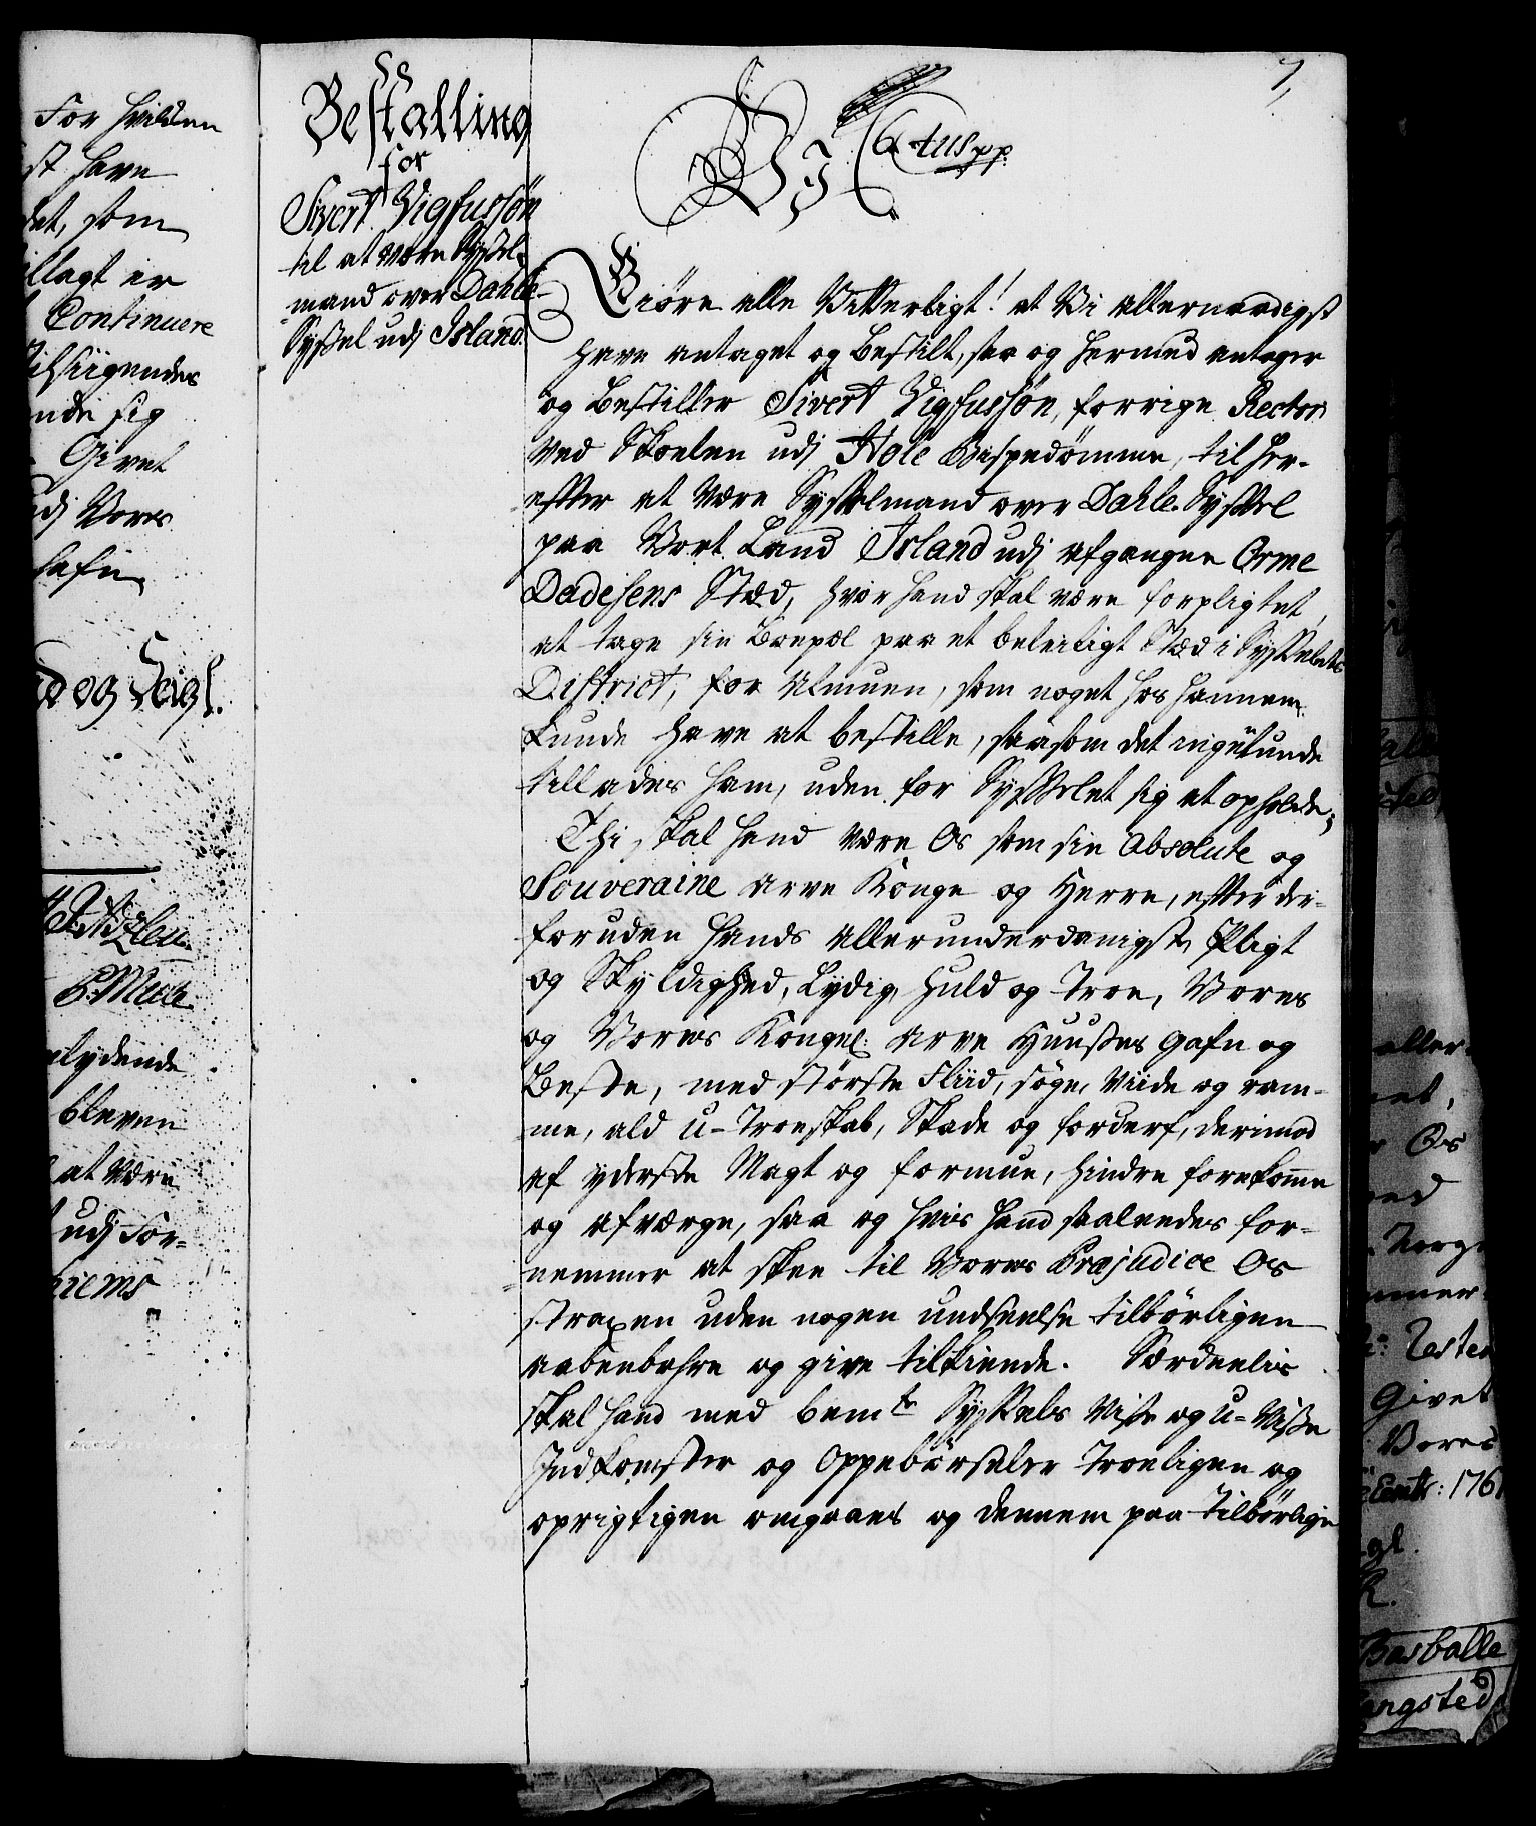 For hvilden
st have
det, som
illagt er
Continuere
tilsiigendes
nde sig
Givet
udj Vores
hafn
d og Seigl.
alydende
bleven
at være
udj For=
hiems
7,
Bestalling
for
Sivert Vigfussøn
til at være Syssel=
mand over Dahle-
Syssel udj Island.
Vi C 6tus pp:
Giøre alle Vitterligt! at Vi allernaadigst
have antaget og bestilt, saa og hermed antager
og Bestiller Sivert Vigfussøn, forrige Rector
ved Skoelen udj Hole Bispedømme, til her-
efter at være Sysselmand over Dahle-Syssel
paa Vort Land Island udj afgangne Orme
Dadesens Stæd, hvor hand skal være forpligtet,
at tage sin Boepæl paa et beleiligt Stæd i Sysselets
District, for Almuen, som noget hos hannem
kunde have at bestille, saasom det ingenlunde
tillades ham, uden for Sysselet sig at opholde;
Thi skal hand være Os som sin Absolute og
Souveraine Arve Konge og Herre, efter der-
foruden hands allerunderdanigste Pligt
og Skyldighed, Lydig, huld og troe, Vores
og Vores Kongel: Arve Huuses gafn og
Beste, med største Fliid, søge, viide og ram-
me, ald U-Troeskab, Skade og forderf, derimod
af yderste Magt og formue, hindre forekomme
og afværge, saa og hvis hand saaledes for-
nemmer at skee til Vores Præjudice Os
straxen uden nogen undseelse tilbørligen
aabenbahre og give tilkiende. Særdeelis
skal hand med bemte Syssels Visse og U-Visse
Indkomster og Oppebørseler troeligen og
oprigtigen omgaaes og dennem paa tilbørlige
aller
Os
Norge
Givet
Vores
1761
Basballe
angsted